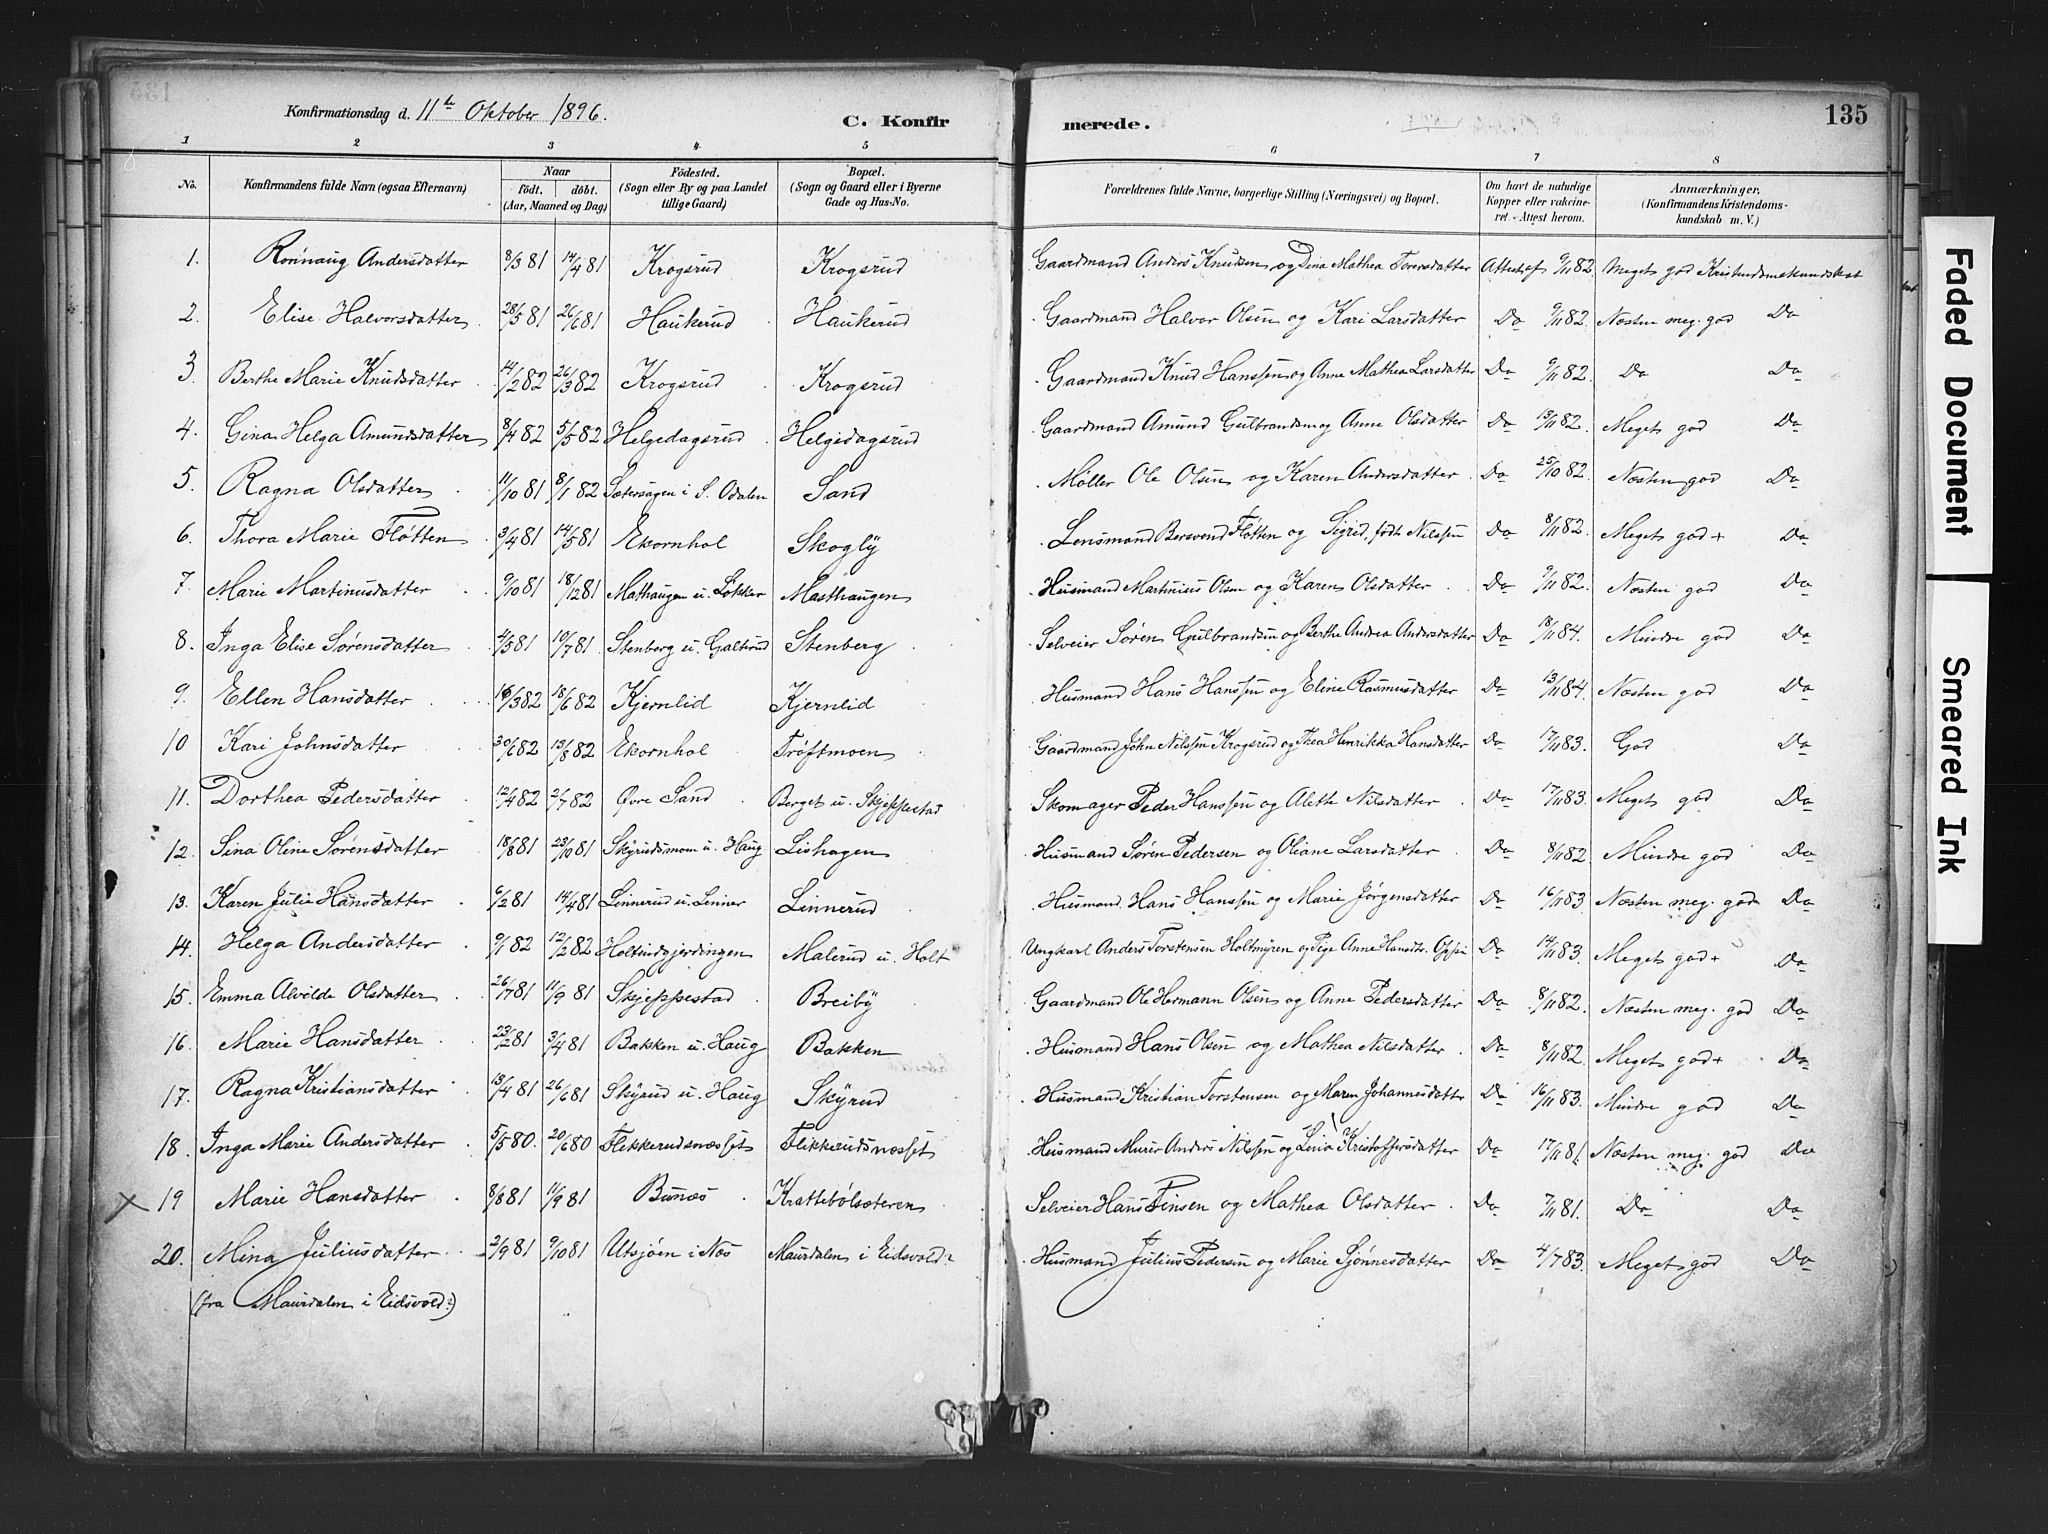 Konfirmationsdag d. 11te Oktober 1896.
C. Konfir
merede.
135
1 2 3 4 5 6 7 8
No. Konfirmandens fulde Navn (ogsaa Efternavn) Naar født. døbt. (Aar, Maaned og Dag) Fødested. (Sogn eller By og paa Landet tillige Gaard) Bopæl. (Sogn og Gaard eller i Byerne Gade og Hus-No. Forældrenes fulde Navne, borgerlige Stilling (Næringsvei) og Bopæl. Om havt de naturlige Kopper eller vakcineret. - Attest herom. Anmærkninger. (Konfirmandens Kristendomskundskab m. V.)
1. Rønnaug Andersdatter 8/3 81 14/4 81 Krogsrud Krogsrud Gaardmand Anders Knudsen og Dina Mathea Toresdatter Attest af 9/11 82. Meget god Kristendomskundskab
2. Elise Halvorsdatter 28/5 81 26/6 81 Haukerud Haukerud Gaardmand Halvor Olsen og Kari Larsdatter Do 9/11 82. Næsten meg. god Do
3. Berthe Marie Knudsdatter 14/2 82 26/3 82 Krogsrud Krogsrud Gaardmand Knud Hanssen og Anne Mathea Larsdatter Do 9/11 82. Do Do
4. Gina Helga Amundsdatter 8/4 82 5/5 82 Helgedagsrud Helgedagsrud Gaardmand Amund Gulbrandsen og Anne Olsdatter Do 13/11 82. Meget god Do
5. Ragna Olsdatter 11/10 81 8/1 82 Sætersagen i S. Odalen Sand Møller Ole Olsen og Karen Andersdatter Do 25/10 82. Næsten god Do
6. Thora Marie Fløtten 3/4 81 14/5 81 Ekornhol Skogly Lensmand Bersvend Fløtten og Sigrid, født Nilssen Do 8/11 82. Meget god + Do
7. Marie Martinusdatter 9/10 81 18/12 81 Mathaugen u. Løkker Masthaugen Husmand Martinius Olsen og Karen Olsdatter Do 9/11 82. Næsten god Do
8. Inga Elise Sørensdatter 4/5 81 10/7 81 Stenberg u. Galterud Stenberg Selveier Søren Gulbrandsen og Berthe Andrea Andersdatter Do 18/11 84. Mindre god Do
9. Ellen Hansdatter 16/3 82 18/6 82 Kjernlid Kjernlid Husmand Hans Hanssen og Eline Rasmusdatter Do 13/11 84. Næsten god Do
10 Kari Johnsdatter 30/6 82 13/8 82 Ekornhol Trøftmoen Gaardmand John Nilssen Krogsrud og Thea Henrikka Hansdatter Do 17/11 83. God Do
11. Dorthea Pedersdatter 12/4 82 2/7 82 Øvre Sand Berget u. Skjeppestad Skomager Peder Hanssen og Alette Nilsdatter Do 17/11 83. Meget god Do
12. Sina Oline Sørensdatter 18/8 81 23/10 81 Skyrudsmoen u. Haug Lishagen Husmand Søren Pedersen og Oliane Larsdatter Do 8/11 82 Mindre god Do
13. Karen Julie Hansdatter 6/2 81 14/4 81 Linnerud u. Linner Linnerud Husmand Hans Hanssen og Marie Jørgensdatter Do 16/11 83. Næsten meg. god Do
14. Helga Andersdatter 9/1 82 12/2 82 Malerud u. Holt Ungkarl Anders Torstensen Holtmyren og Pige Anne Hansdtr. Do 14/11 83. Meget god + Do
15. Emma Alvilde Olsdatter 26/7 81 11/9 81 Skjeppestad Breiby Gaardmand Ole Hermann Olsen og Anne Pedersdatter Do 8/11 82. Næsten meg. god Do
16. Marie Hansdatter 23/2 81 3/4 81 Bakken u. Haug Bakken Husmand Hans Olsen og Mathea Nilsdatter Do 8/11 82. Meget god + Do
17. Ragna Kristiansdatter 13/4 81 26/6 81 Skyrud u. Haug Skyrud Husmand Kristian Torstensen og Maren Johannesdatter Do 16/11 83. Mindre god Do
18. Inga Marie Andersdatter 5/5 80. 20/6 80 Flikkerudsnæsset Flikkerudsnæsset Husmand Murer Anders Nilssen og Lina Kristoffersdatter Do 17/11 81. Næsten meg. god Do
19 Marie Hansdatter 8/8 81 11/9 81 Bunæs Krattebølsæteren Selveier Hans Finsen og Mathea Olsdatter Do 7/11 81. Do Do
20. Mina Juliusdatter 2/9 81 9/10 81 Utsjøen i Næs Maurdalen i Eidsvold Husmand Julius Pedersen og Marie Sjønnesdatter Do 4/7 83. Meget god Do
(fra Maurdalen i Eidsvold)
Faded Document
Smeared Ink